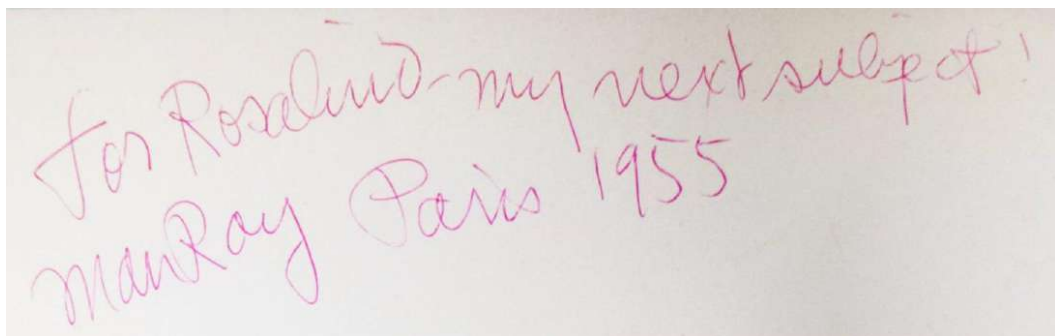 For Rosalind - my next subject!
Man Ray Paris 1955